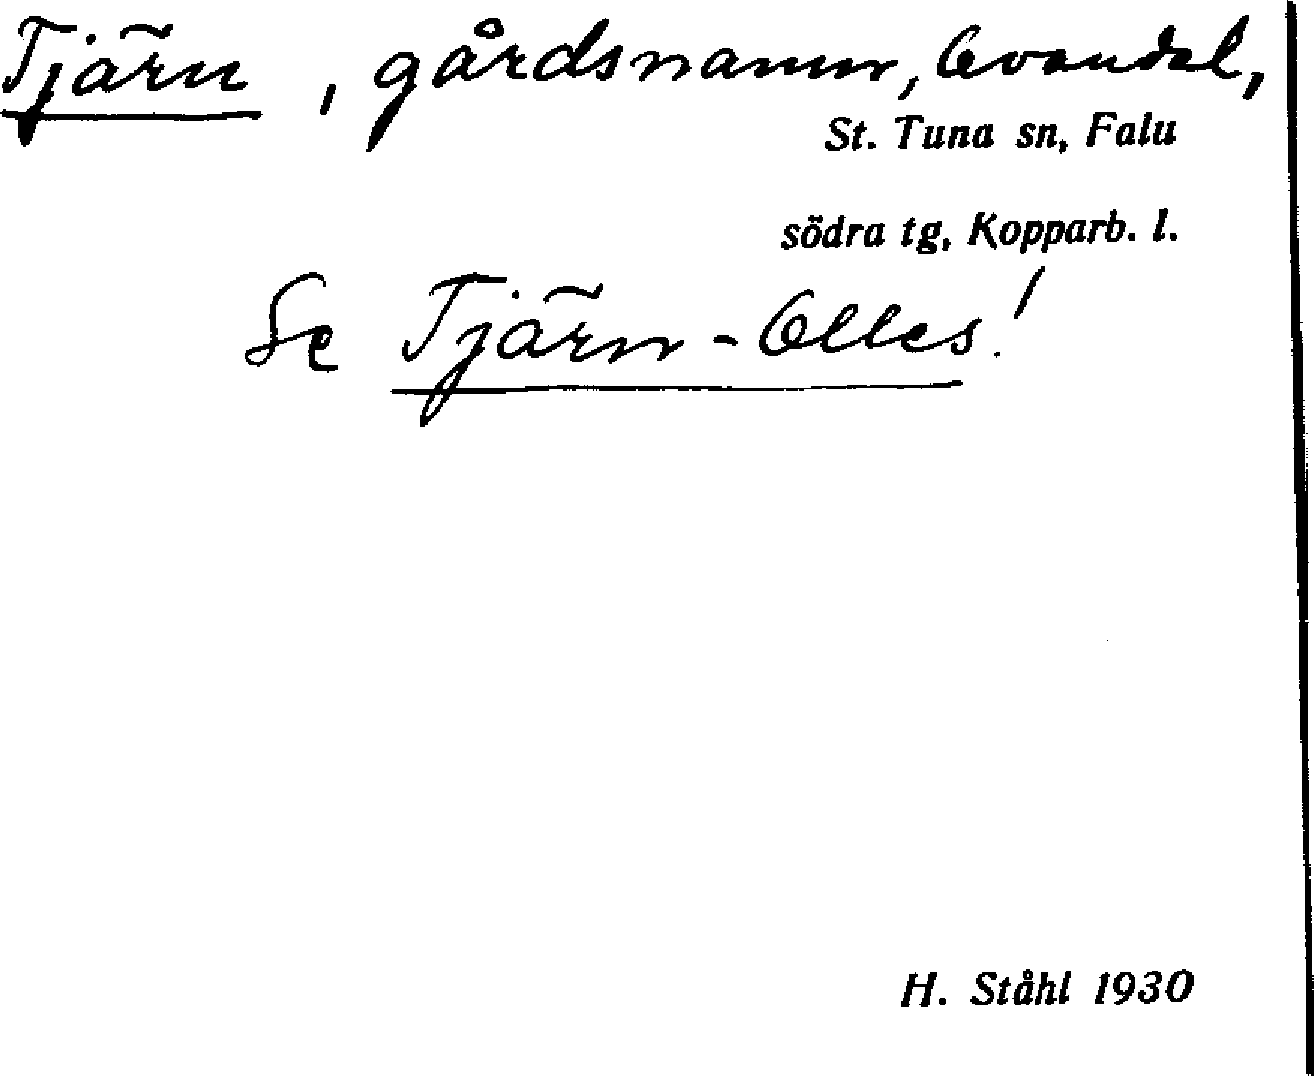 Tjärn, gårdsnamn, Ovandal,
St. Tuna sn, Falu
södra tg, Kopparb. l.
Se Tjärn-Olles!
H. Ståhl 1930